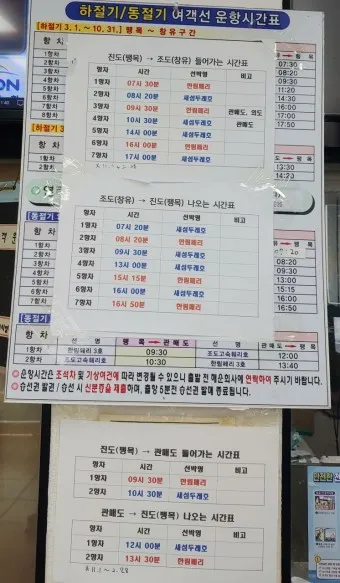 하절기/동절기 여객선 운항시간표
[하절기 3. 1. ~ 10. 31.] 팽목 ~ 창유구간
항 차
07:30
08:20
09:30
11:20
14:30
16:00
17:50
진도(팽목) → 조도(창유) 들어가는 시간표
항차 시간 선박명 비고
1항차 07시 30분 한림페리
2항차 08시 20분 새섬두레호
3항차 09시 30분 한림페리 관매도, 외도
4항차 10시 30분 새섬두레호 관매도
5항차 14시 00분 새섬두레호
6항차 16시 00분 한림페리
7항차 17시 00분 새섬두레호
[하절기
항 차
1항차
2항차
13:30
14:20
조도(창유) → 진도(팽목) 나오는 시간표
항차 시간 선박명 비고
1항차 07시 20분 새섬두레호
2항차 08시 20분 한림페리
3항차 09시 30분 새섬두레호
4항차 13시 00분 새섬두레호
5항차 15시 15분 한림페리
6항차 16시 00분 새섬두레호
7항차 16시 50분 한림페리
[동절기
항 차
1항차
2항차
3항차
4항차
5항차
6항차
7항차
08:20
09:30
13:00
15:15
16:00
16:50
[동절기
항 차 선 명 팽 목 → 관 매 도 선 명 관 매 도 → 팽 목
1항차 한림페리 3호 09:30 조도고속훼리호 12:00
2항차 조도고속훼리호 10:30 한림페리 3호 13:40
운항시간은 조석차 및 기상여건에 따라 변경될 수 있으니 출발 전 해운회사에 연락하여 주시기 바랍니다.
승선권 발권 / 승선 시 신분증을 제출하며, 출항 5분전 승선권 발매 종료됩니다.
진도(팽목) → 관매도 들어가는 시간표
항차 시간 선박명 비고
1항차 09시 30분 한림페리
2항차 10시 30분 새섬두레호
관매도 → 진도(팽목) 나오는 시간표
항차 시간 선박명 비고
1항차 12시 00분 새섬두레호
2항차 13시 30분 한림페리